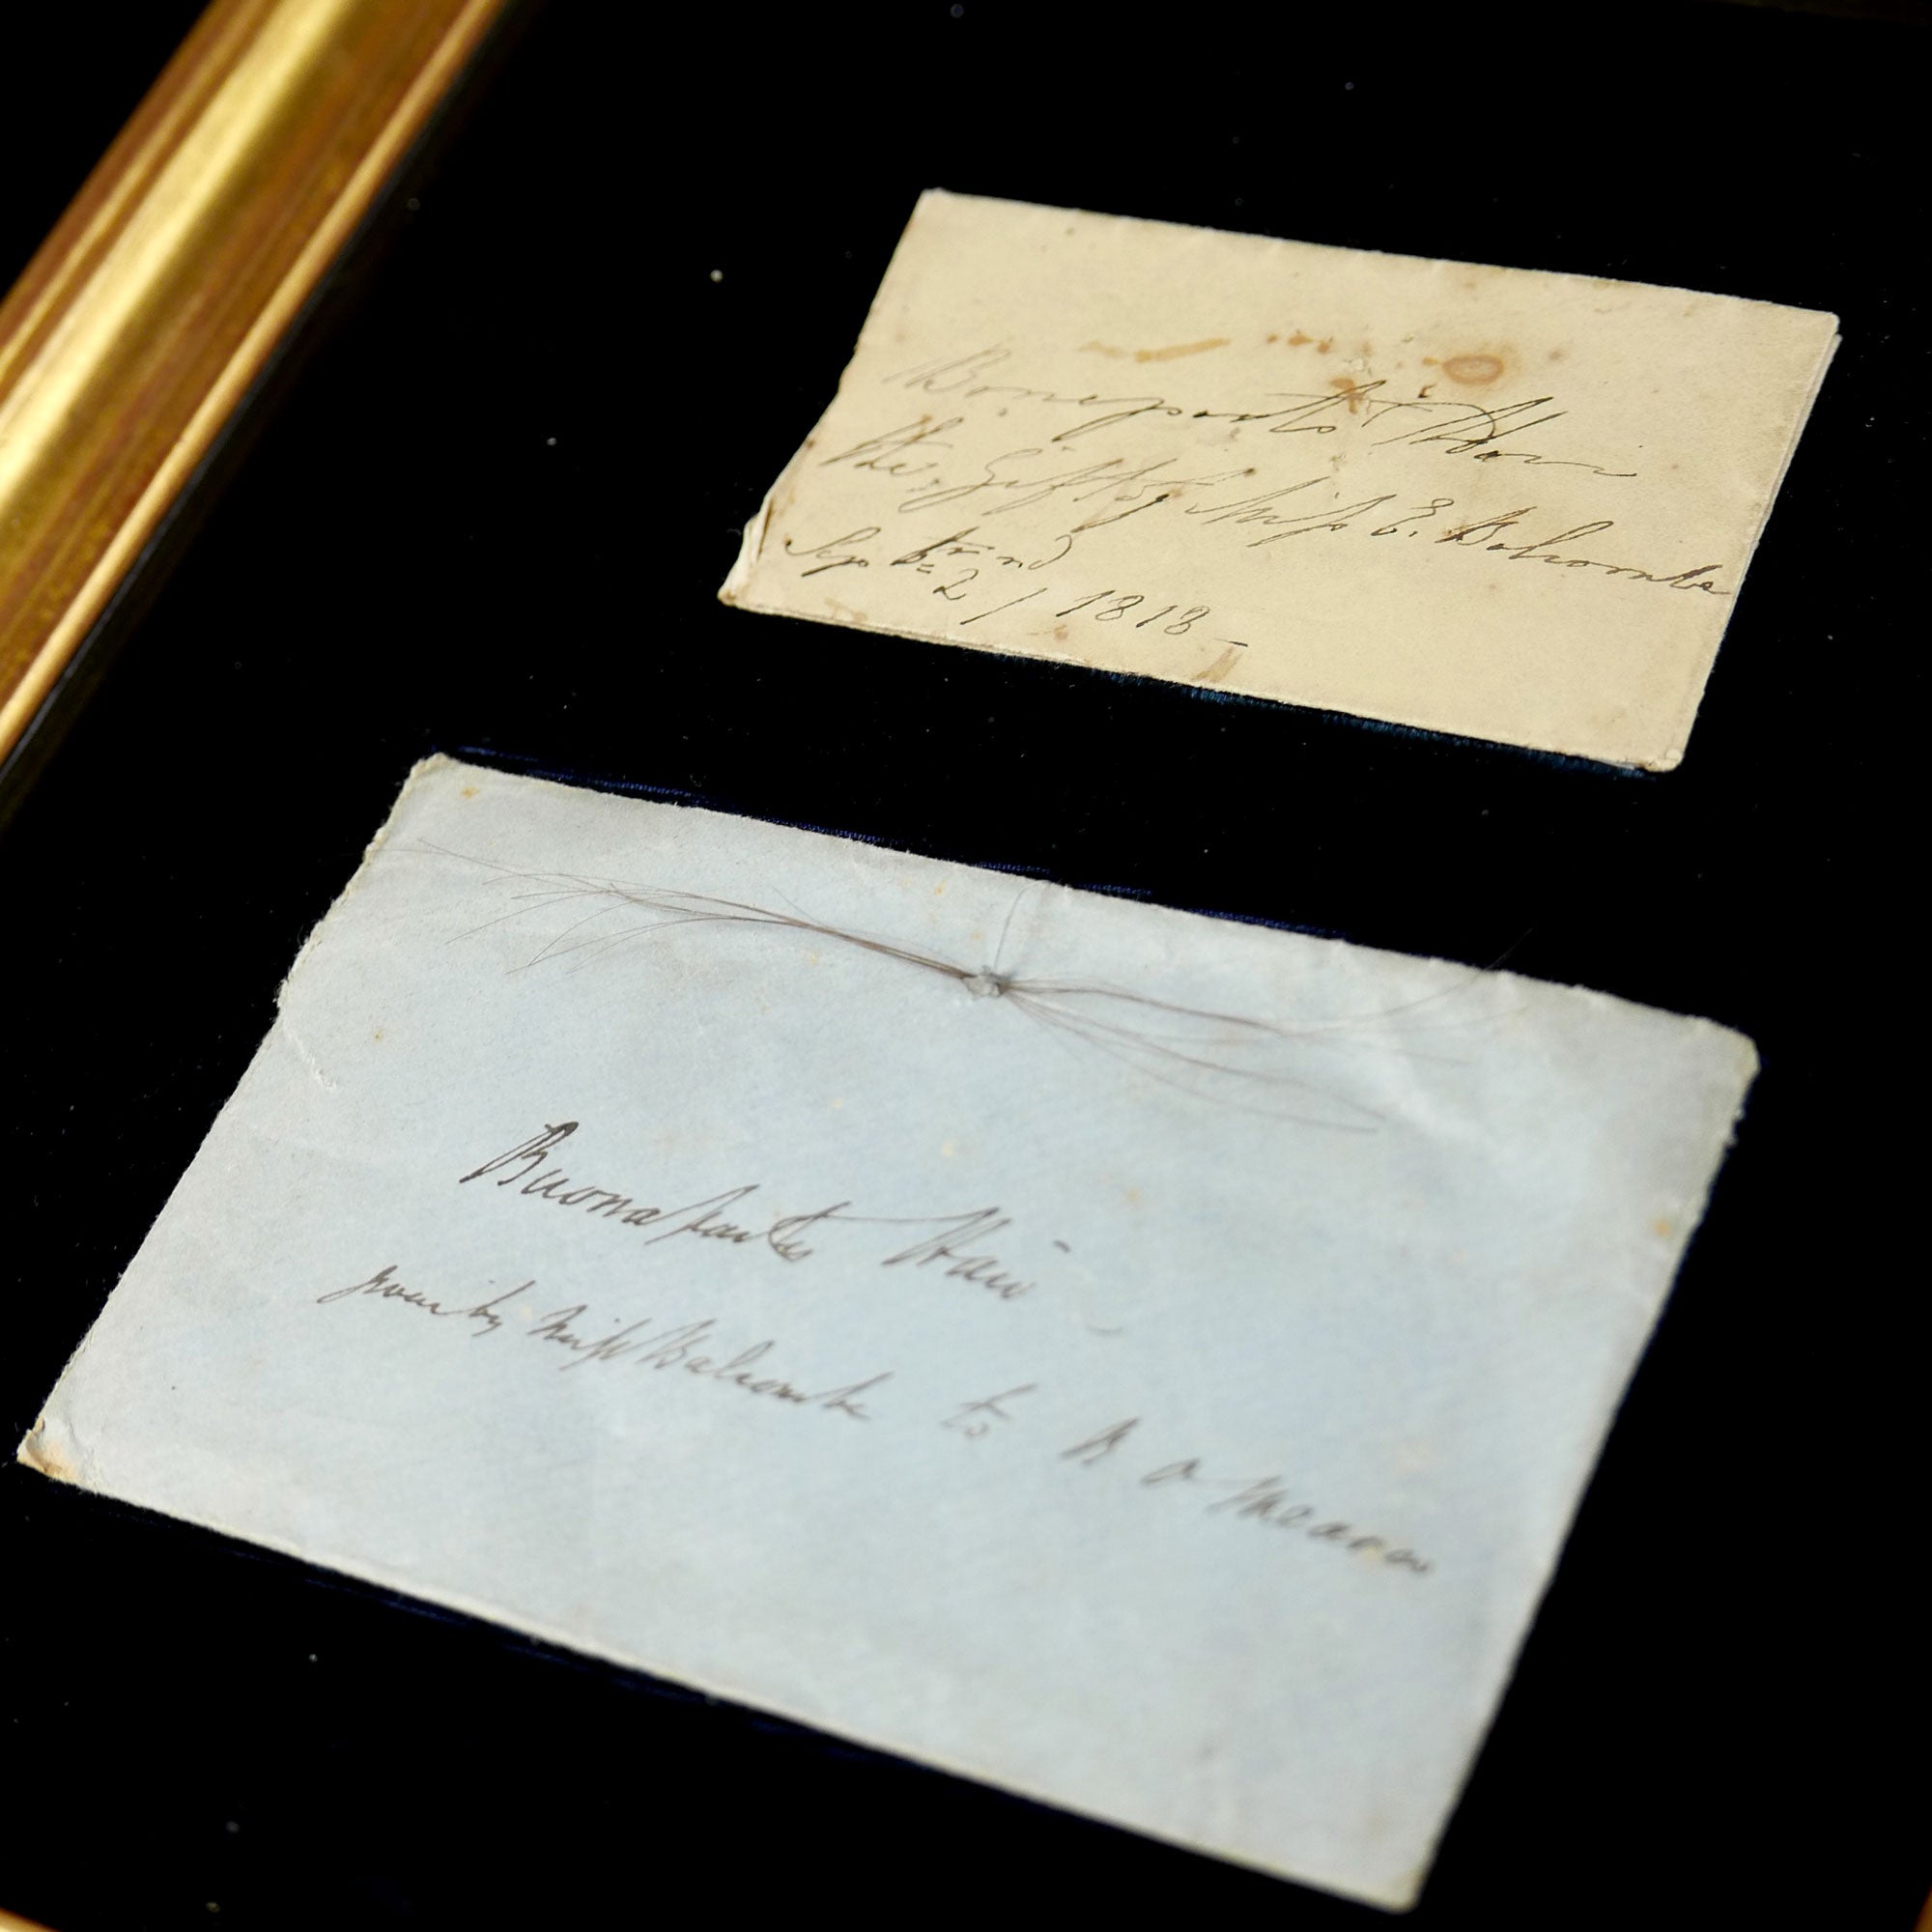 Bonaparts Hair
The Gift of Miss E. Balcombe
Sep tr 2nd / 1818 -
Buonapartes Hair
given by Miss Balcombe to